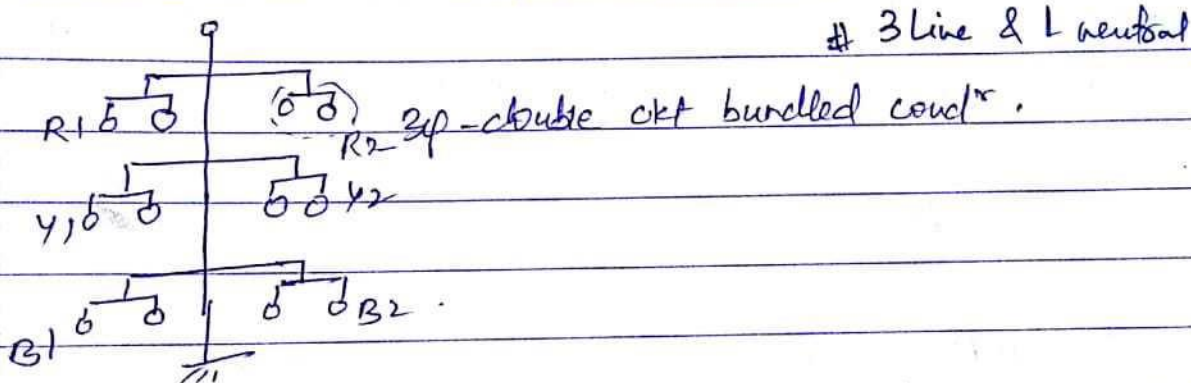 # 3 Line & 1 neutral
R1
R2 3φ-double ckt bundled condr.
Y1
Y2
B1
B2.